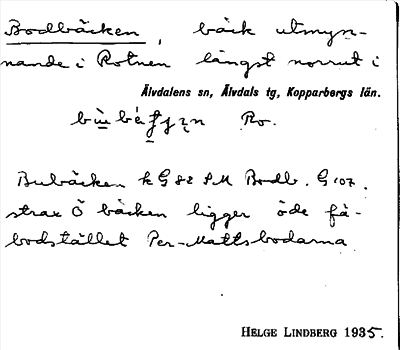 Bodbäcken, bäck utmyn-
nande i Rotnen längst norrut i
Älvdalens sn, Älvdals tg, Kopparbergs län.
Ro.
Bubäcken k G 82 SM Bodb. G 107.
strax Ö bäcken ligger öde fä-
bodstället Per-Mattsbodarna
HELGE LINDBERG 1935.